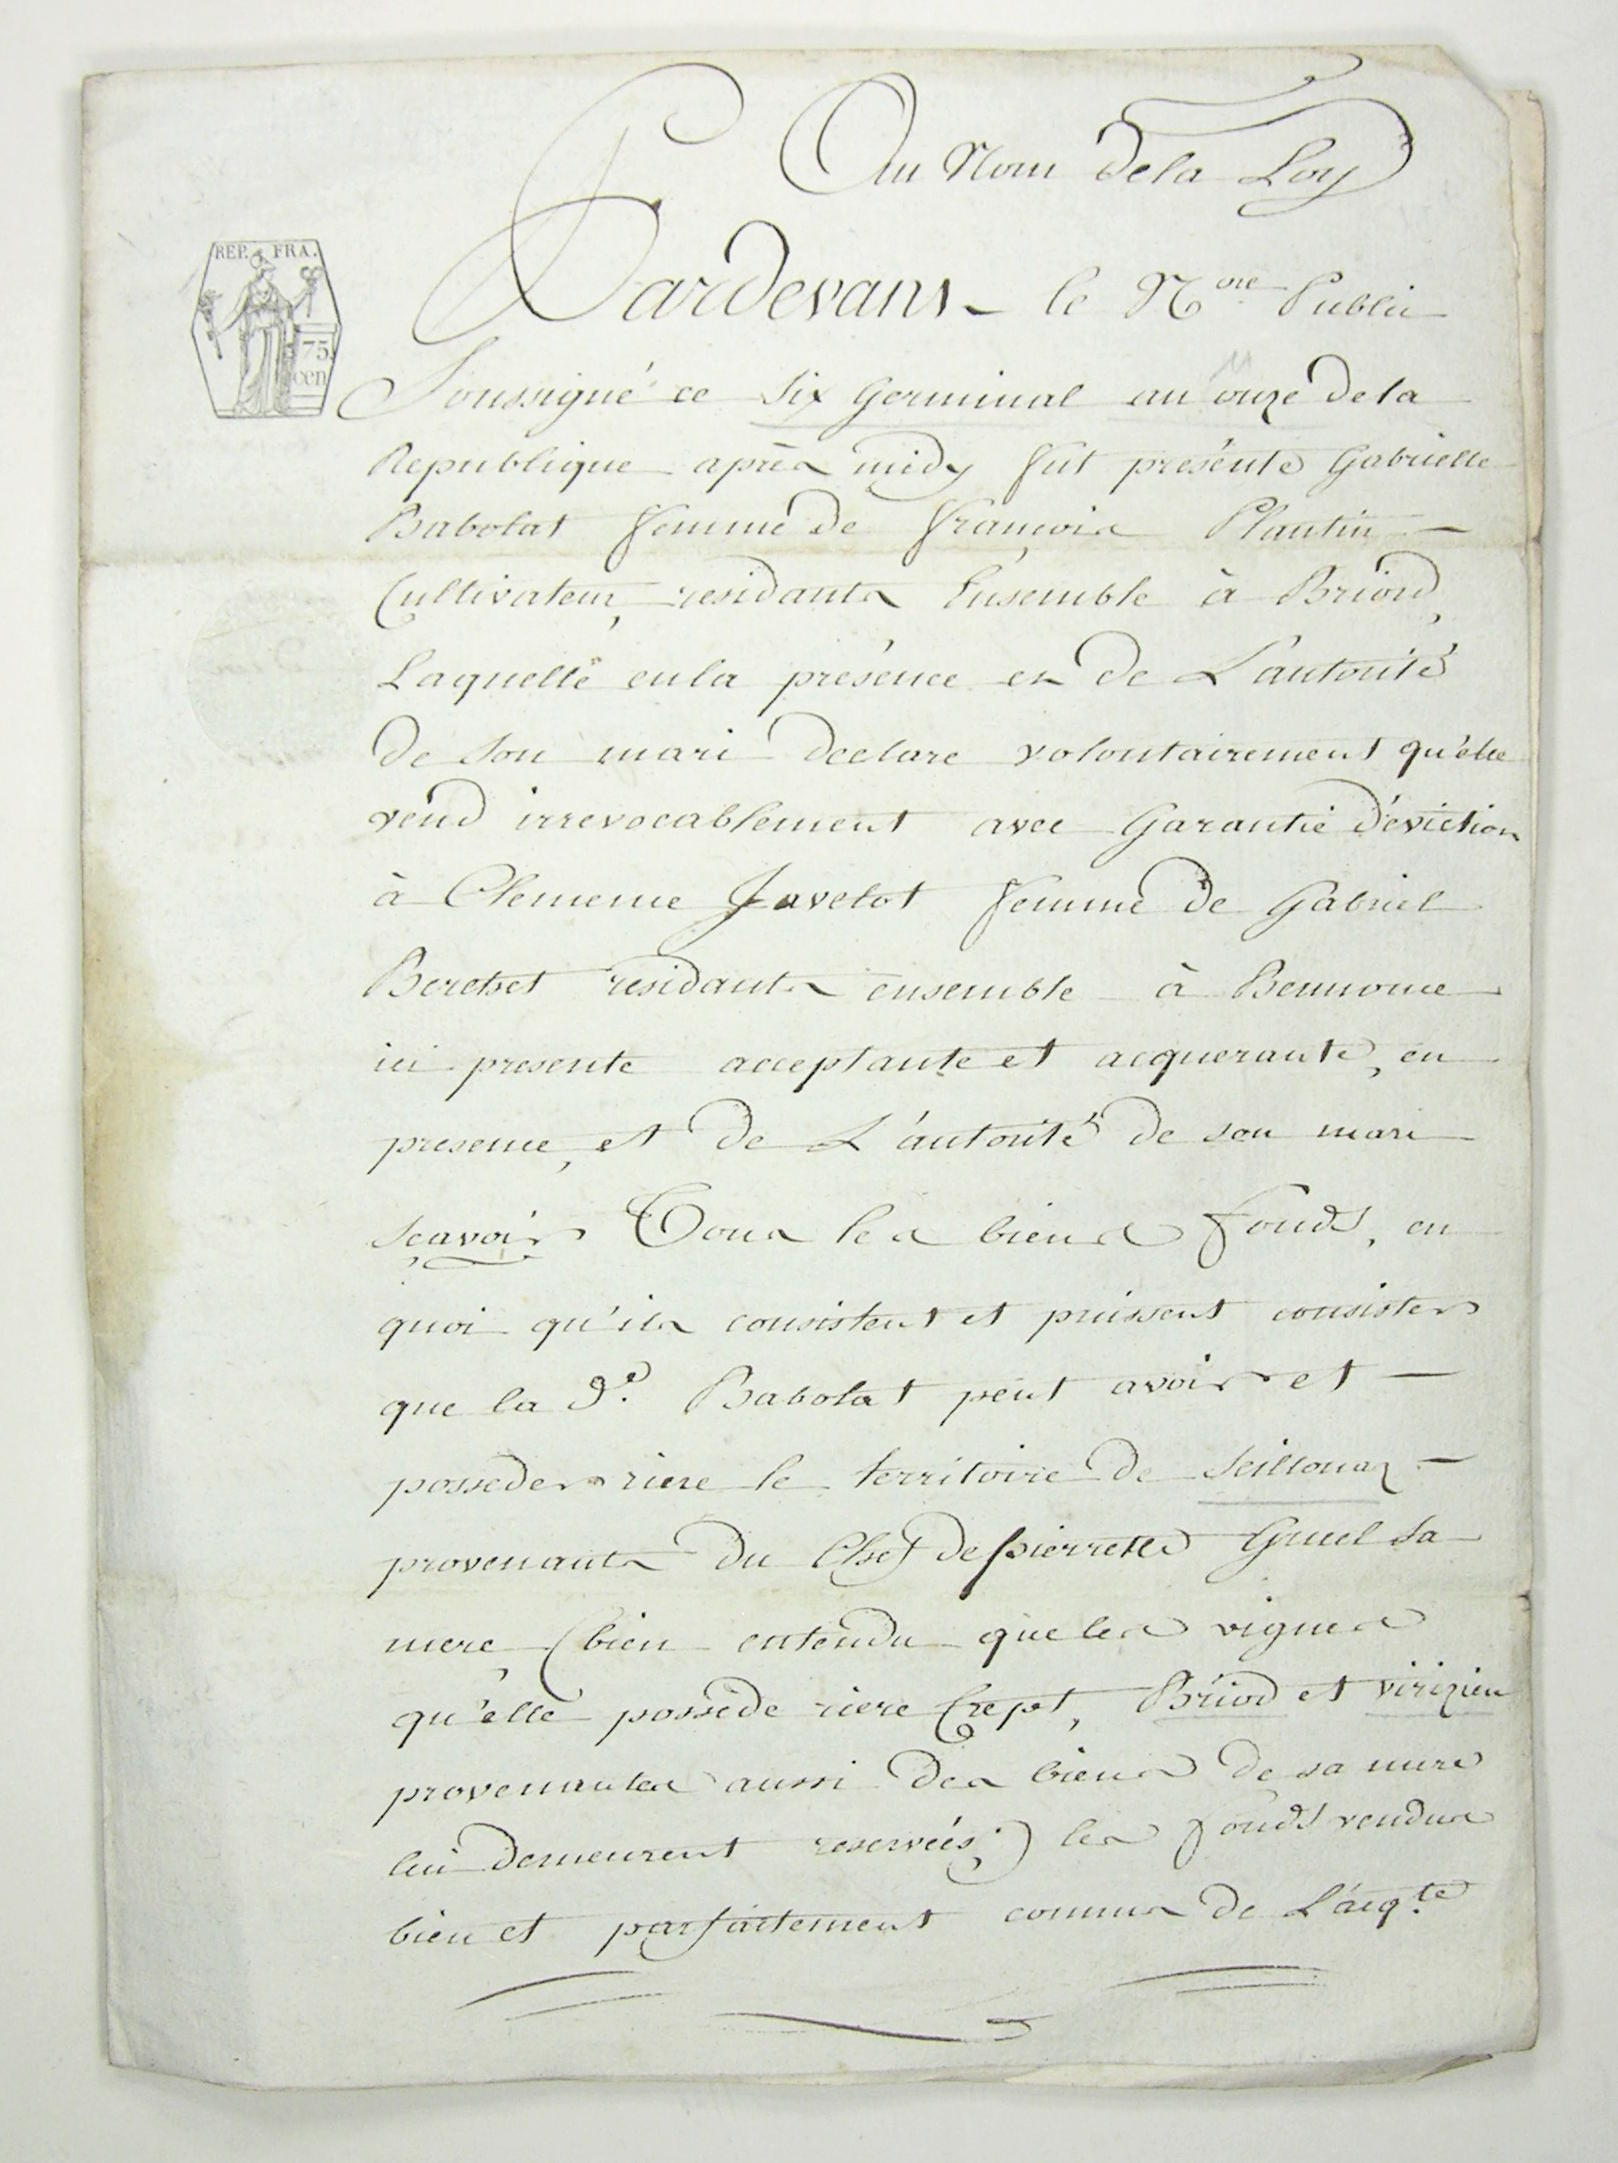 Au Nom de la Loy
REP. FRA.
75.
cen
Pardevant le N.ore Public
Soussigné ce six Germinal an onze de la
Republique après midy fut présente Gabrielle
Babolat femme de françois Plantin
Cultivateur, residants Ensemble à Briord,
Laquelle en la présence et de L'autorité
de son mari declare volontairement qu'elle
vend irrevocablement avec Garantie d'éviction
à Clemence Javelot femme de Gabriel
Beretset residants ensemble à Bennonce
ici presente acceptante et acquerante, en
presence, et de L'autorité de son mari
scavoir Tous les biens fonds, en
quoi qu'ils consistent et puissent consister
que la d.e Babolat peut avoir et
posseder riere le territoire de Seillonaz
provenants du Chef de pierrette Guel sa
mere, (bien entendu que les vignes
qu'elle possède riere Crept, Briod et virizieu
provenantes aussi des biens de sa mere
lui demeurent reservées;) les fonds vendus
bien et parfaitement connus de L'acq.te